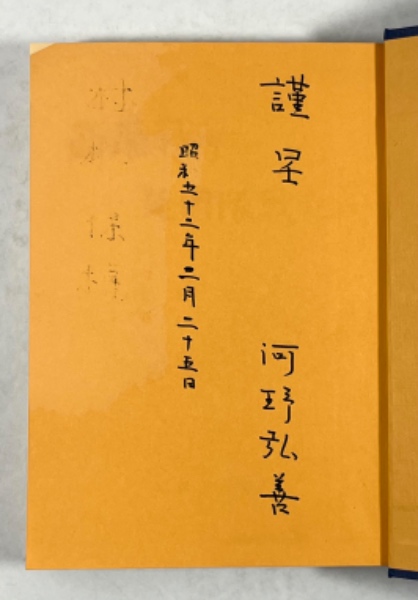 謹呈 河野弘善
昭和五十二年二月二十五日